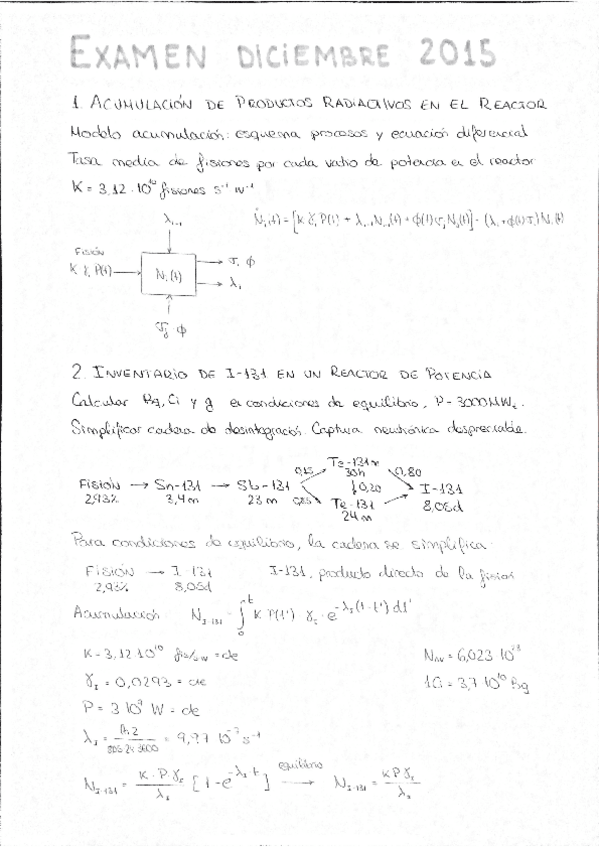 EXAMEN DICIEMBRE 2015
1. ACUMULACIÓN DE PRODUCTOS RADIACTIVOS EN EL REACTOR
Modelo acumulación: esquema procesos y ecuación diferencial
Tasa media de fisiones por cada vatio de potencia en el reactor
K = 3,12 · 10¹⁰ fisiones s⁻¹ W⁻¹
λᵢ₋₁
Ṅᵢ(t) = [K γᵢ P(t) + λᵢ₋₁ Nᵢ₋₁(t) + ϕ(t) σⱼ Nⱼ(t)] - (λᵢ + ϕ(t) σᵢ) Nᵢ(t)
FISIÓN
K γᵢ P(t)
Nᵢ(t)
σᵢ ϕ
λᵢ
σⱼ ϕ
2. INVENTARIO DE I-131 EN UN REACTOR DE POTENCIA
Calcular Bq, Ci y g en condiciones de equilibrio, P = 3000 MWₜ.
Simplificar cadena de desintegración. Captura neutrónica despreciable.
Te-131m
0,15 30h 0,80
FISIÓN → Sn-131 → Sb-131 ↓0,20 I-131
2,93% 3,4m 23m 0,85 Te-131 8,05d
24m
Para condiciones de equilibrio, la cadena se simplifica
FISIÓN → I-131 I-131, producto directo de la fisión
2,93% 8,05d
Acumulación N I-131 = ∫₀ᵗ K P(t') γ_I e^(-λ_I (t-t')) dt'
K = 3,12 · 10¹⁰ fis/s W = cte N_AV = 6,023 10²³
γ_I = 0,0293 = cte 1Ci = 3,7 10¹⁰ Bq
P = 3 10⁹ W = cte
λ_I = ln 2 / 8,05 · 24 · 3600 = 9,97 10⁻⁷ s⁻¹
N I-131 = K · P · γ_I / λ_I [1 - e^(-λ_I t)] equilibrio → N I-131 = K P γ_I / λ_I